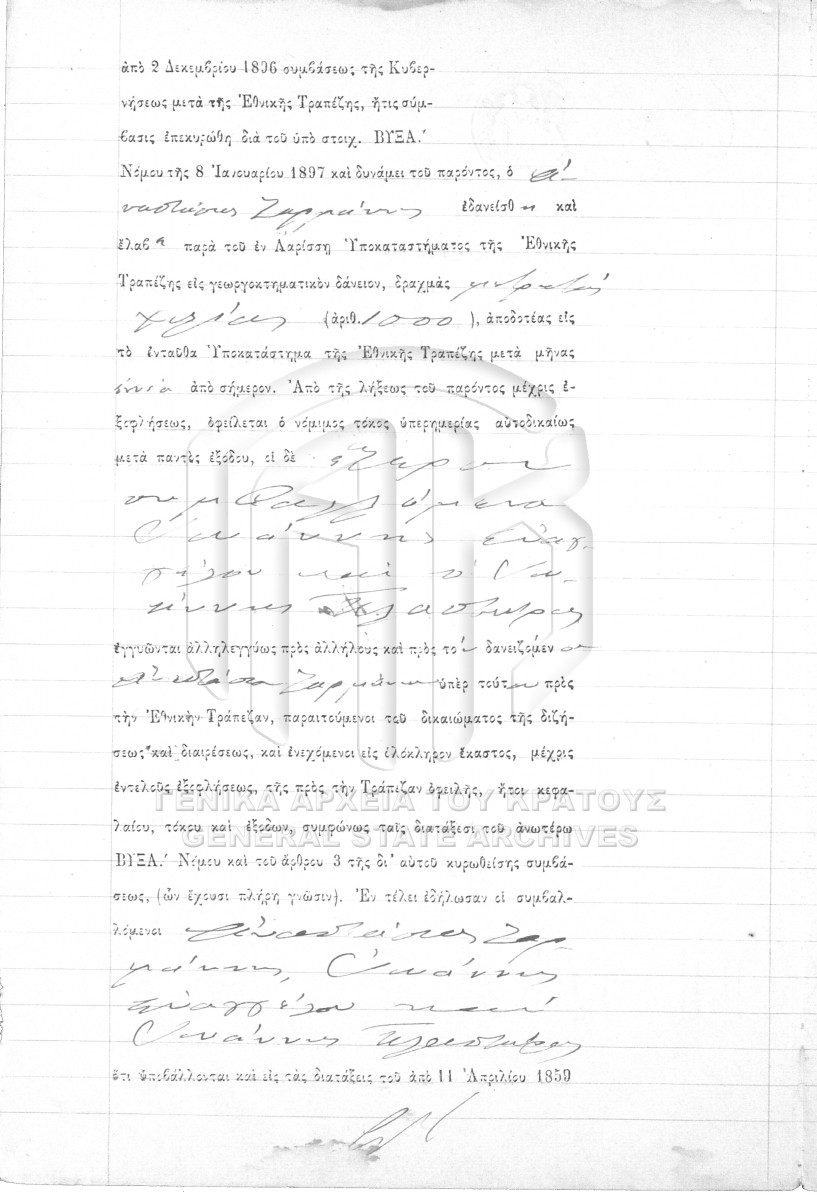 ἀπὸ 2 Δεκεμβρίου 1896 συμβάσεως τῆς Κυβερ-
νήσεως μετὰ τῆς Ἐθνικῆς Τραπέζης, ἥτις σύμ-
βασις ἐπεκυρώθη διὰ τοῦ ὑπὸ στοιχ. ΒΥΞΑ.΄
Νόμου τῆς 8 Ἰανουαρίου 1897 καὶ δυνάμει τοῦ παρόντος, ὁ Ἀ-
ναστάσιος Ζαρμάνης ἐδανείσθη καὶ
ἔλαβε παρὰ τοῦ ἐν Λαρίσσῃ Ὑποκαταστήματος τῆς Ἐθνικῆς
Τραπέζης εἰς γεωργοκτηματικὸν δάνειον, δραχμὰς
χιλίας (ἀριθ. 1000), ἀποδοτέας εἰς
τὸ ἐνταῦθα Ὑποκατάστημα τῆς Ἐθνικῆς Τραπέζης μετὰ μῆνας
ἐννέα ἀπὸ σήμερον. Ἀπὸ τῆς λήξεως τοῦ παρόντος μέχρις ἐ-
ξοφλήσεως, ὀφείλεται ὁ νόμιμος τόκος ὑπερημερίας αὐτοδικαίως
μετὰ παντὸς ἐξόδου, οἱ δὲ ἕτεροι
συμβαλλόμενοι
Ἰωάννης Εὐαγ-
γέλου καὶ ὁ Ἰω-
άννης
ἐγγυῶνται ἀλληλεγγύως πρὸς ἀλλήλους καὶ πρὸς τὸν δανειζόμενον
Ἀναστάσιον Ζαρμάνην ὑπὲρ τούτου πρὸς
τὴν Ἐθνικὴν Τράπεζαν, παραιτούμενοι τοῦ δικαιώματος τῆς διζή-
σεως καὶ διαιρέσεως, καὶ ἐνεχόμενοι εἰς ὁλόκληρον ἕκαστος, μέχρις
ἐντελοῦς ἐξοφλήσεως, τῆς πρὸς τὴν Τράπεζαν ὀφειλῆς, ἤτοι κεφα-
ΓΕΝΙΚΑ ΑΡΧΕΙΑ ΤΟΥ ΚΡΑΤΟΥΣ
λαίου, τόκου καὶ ἐξόδων, συμφώνως ταῖς διατάξεσι τοῦ ἀνωτέρω
GENERAL STATE ARCHIVES
ΒΥΞΑ.΄ Νόμου καὶ τοῦ ἄρθρου 3 τῆς δι' αὐτοῦ κυρωθείσης συμβά-
σεως, (ὧν ἔχουσι πλήρη γνῶσιν). Ἐν τέλει ἐδήλωσαν οἱ συμβαλ-
λόμενοι Ἀναστάσιος Ζαρ-
μάνης, Ἰωάννης
Εὐαγγέλου καὶ
Ἰωάννης
ὅτι ὑποβάλλονται καὶ εἰς τὰς διατάξεις τοῦ ἀπὸ 11 Ἀπριλίου 1859